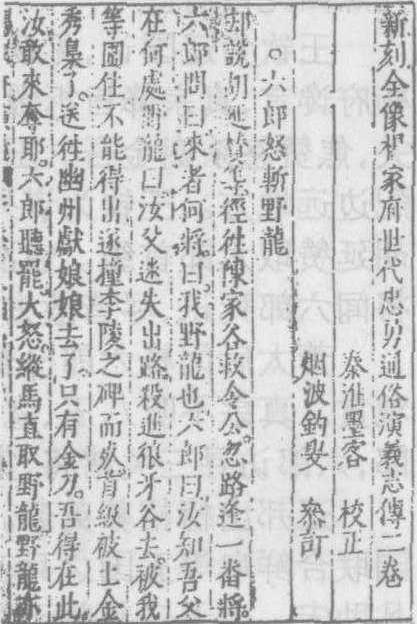 新刻全像楊家府世代忠勇通俗演義志傳二卷
秦淮墨客 校正
烟波釣叟 參訂
○六郎怒斬野龍
却說胡延贊等徑往陳家谷救令公忽路逢一番將
六郎問曰來者何將曰我野龍也六郎曰汝知吾父
在何處野龍曰汝父迷失出路殺進狼牙谷去被我
等圍住不能得出遂撞李陵之碑而死首級被土金
秀梟了送往幽州獻娘娘去了只有金刀吾得在此
汝敢來奪耶六郎聽罷大怒縱馬直取野龍野龍亦